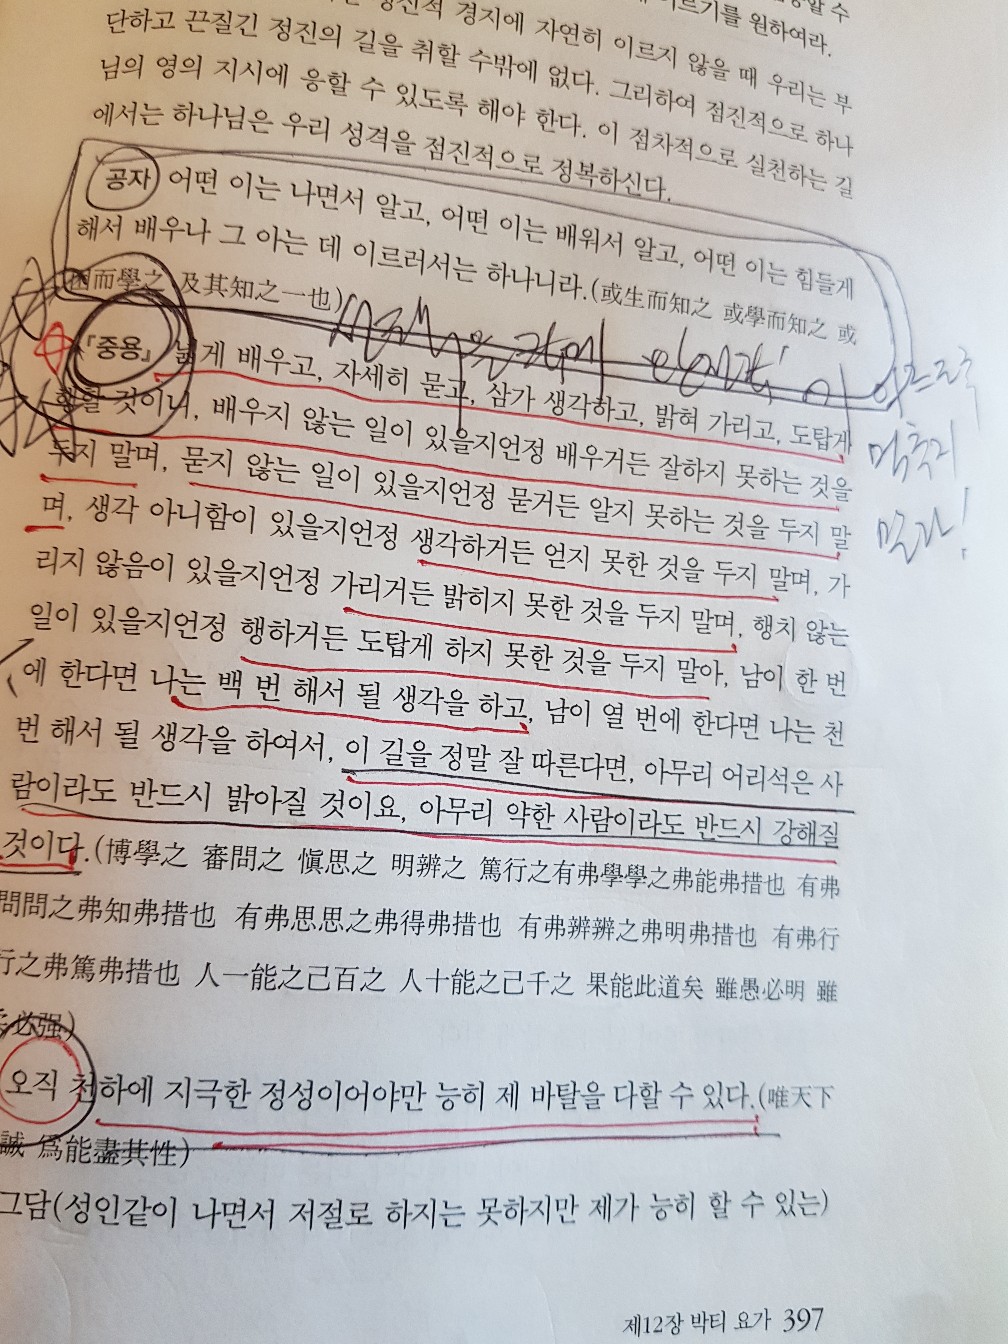 이르기를 원하여라.
정신적 경지에 자연히 이르지 않을 때 우리는 부
단하고 끈질긴 정진의 길을 취할 수밖에 없다. 그리하여 점진적으로 하나
님의 영의 지시에 응할 수 있도록 해야 한다. 이 점차적으로 실천하는 길
에서는 하나님은 우리 성격을 점진적으로 정복하신다.
공자 어떤 이는 나면서 알고, 어떤 이는 배워서 알고, 어떤 이는 힘들게
해서 배우나 그 아는 데 이르러서는 하나니라.(或生而知之 或學而知之 或
困而學之 及其知之一也)
『중용』 넓게 배우고, 자세히 묻고, 삼가 생각하고, 밝혀 가리고, 도탑게
행할 것이니, 배우지 않는 일이 있을지언정 배우거든 잘하지 못하는 것을
두지 말며, 묻지 않는 일이 있을지언정 묻거든 알지 못하는 것을 두지 말
며, 생각 아니함이 있을지언정 생각하거든 얻지 못한 것을 두지 말며, 가
리지 않음이 있을지언정 가리거든 밝히지 못한 것을 두지 말며, 행치 않는
일이 있을지언정 행하거든 도탑게 하지 못한 것을 두지 말아, 남이 한 번
에 한다면 나는 백 번 해서 될 생각을 하고, 남이 열 번에 한다면 나는 천
번 해서 될 생각을 하여서, 이 길을 정말 잘 따른다면, 아무리 어리석은 사
람이라도 반드시 밝아질 것이요, 아무리 약한 사람이라도 반드시 강해질
것이다.(博學之 審問之 愼思之 明辨之 篤行之有弗學學之弗能弗措也 有弗
問問之弗知弗措也 有弗思思之弗得弗措也 有弗辨辨之弗明弗措也 有弗行
行之弗篤弗措也 人一能之己百之 人十能之己千之 果能此道矣 雖愚必明 雖
必强)
오직 천하에 지극한 정성이어야만 능히 제 바탈을 다할 수 있다.(唯天下
誠 爲能盡其性)
그담(성인같이 나면서 저절로 하지는 못하지만 제가 능히 할 수 있는)
멈추지
말라!
제12장 박티 요가 397